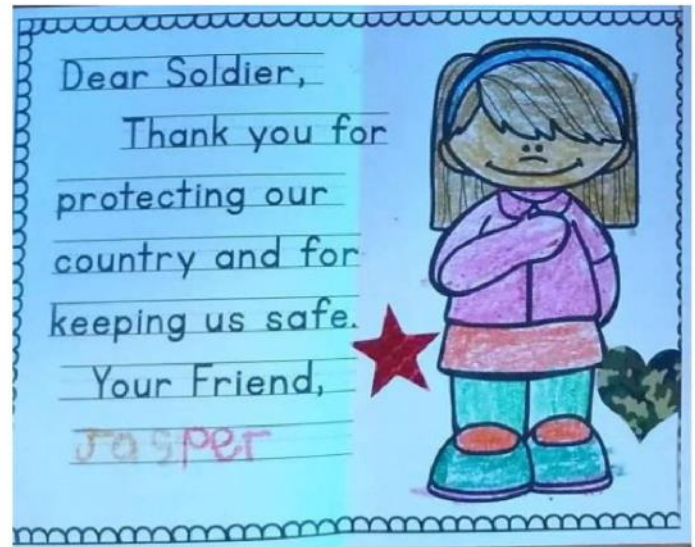 Dear Soldier,
Thank you for
protecting our
country and for
keeping us safe.
Your Friend,
Jasper